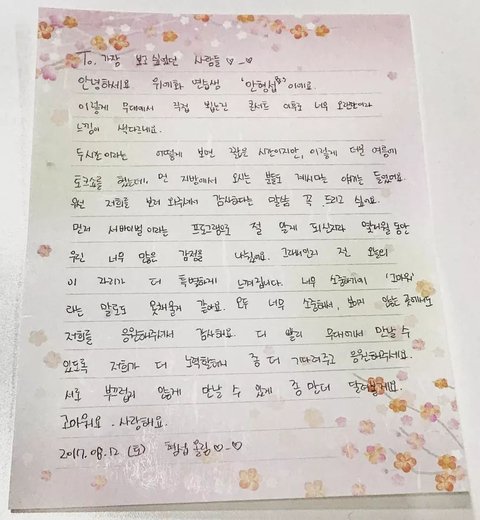 To. 가장 보고 싶었던 사람들♡_♡
안녕하세요 위에화 연습생 '안형섭'이에요.
이렇게 무대에서 직접 뵙는건 콘서트 이후로 너무 오랜만이라
느낌이 색다르네요.
두시간이라는 어떻게 보면 짧은 시간이지만, 이렇게 더운 여름에
토크쇼를 했는데, 먼 지방에서 오시는 분들도 계시다는 얘기를 들었어요.
우선 저희를 보러 와주셔서 감사하다는 말씀 꼭 드리고 싶어요.
먼저 서바이벌이라는 프로그램으로 절 알게 되신지라 몇개월 동안
우린 너무 많은 감정을 나눴어요. 그래서인지 전 오늘의
이 자리가 더 특별하게 느껴집니다. 너무 소중하기에 '고마워'
라는 말로도 못채울거 같아요. 모두 너무 소중해서, 보이지 않는 곳에서도
저희를 응원해주셔서 감사해요. 더 빨리 무대에서 만날 수
있도록 저희가 더 노력할테니 좀 더 기다려주고 응원해주세요.
서로 부끄럽지 않게 만날 수 있게 좀만 더 달려볼게요.
고마워요. 사랑해요.
2017.08.12 (토) 형섭 올림♡_♡